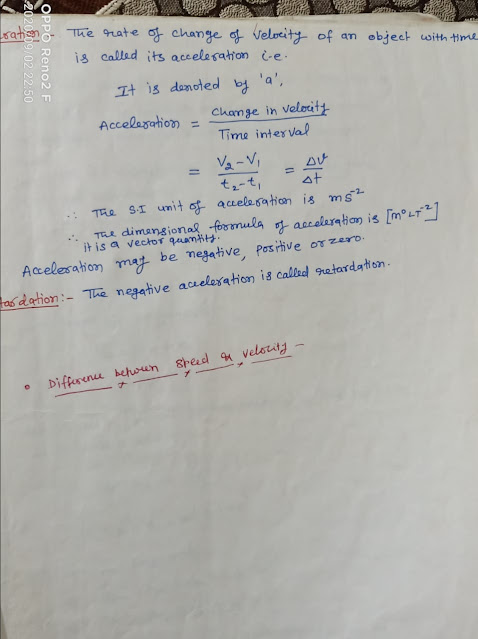 ration The rate of change of Velocity of an object with time
is called its acceleration i.e.
It is denoted by 'a',
Acceleration = Change in velocity / Time interval
= V₂-V₁ / t₂-t₁ = Δv / Δt
∴ The S.I unit of acceleration is ms⁻²
∴ The dimensional formula of acceleration is [M⁰LT⁻²]
It is a vector quantity.
Acceleration may be negative, positive or zero.
tardation:- The negative acceleration is called retardation.
• Difference between Speed & velocity -
OPPO Reno2 F